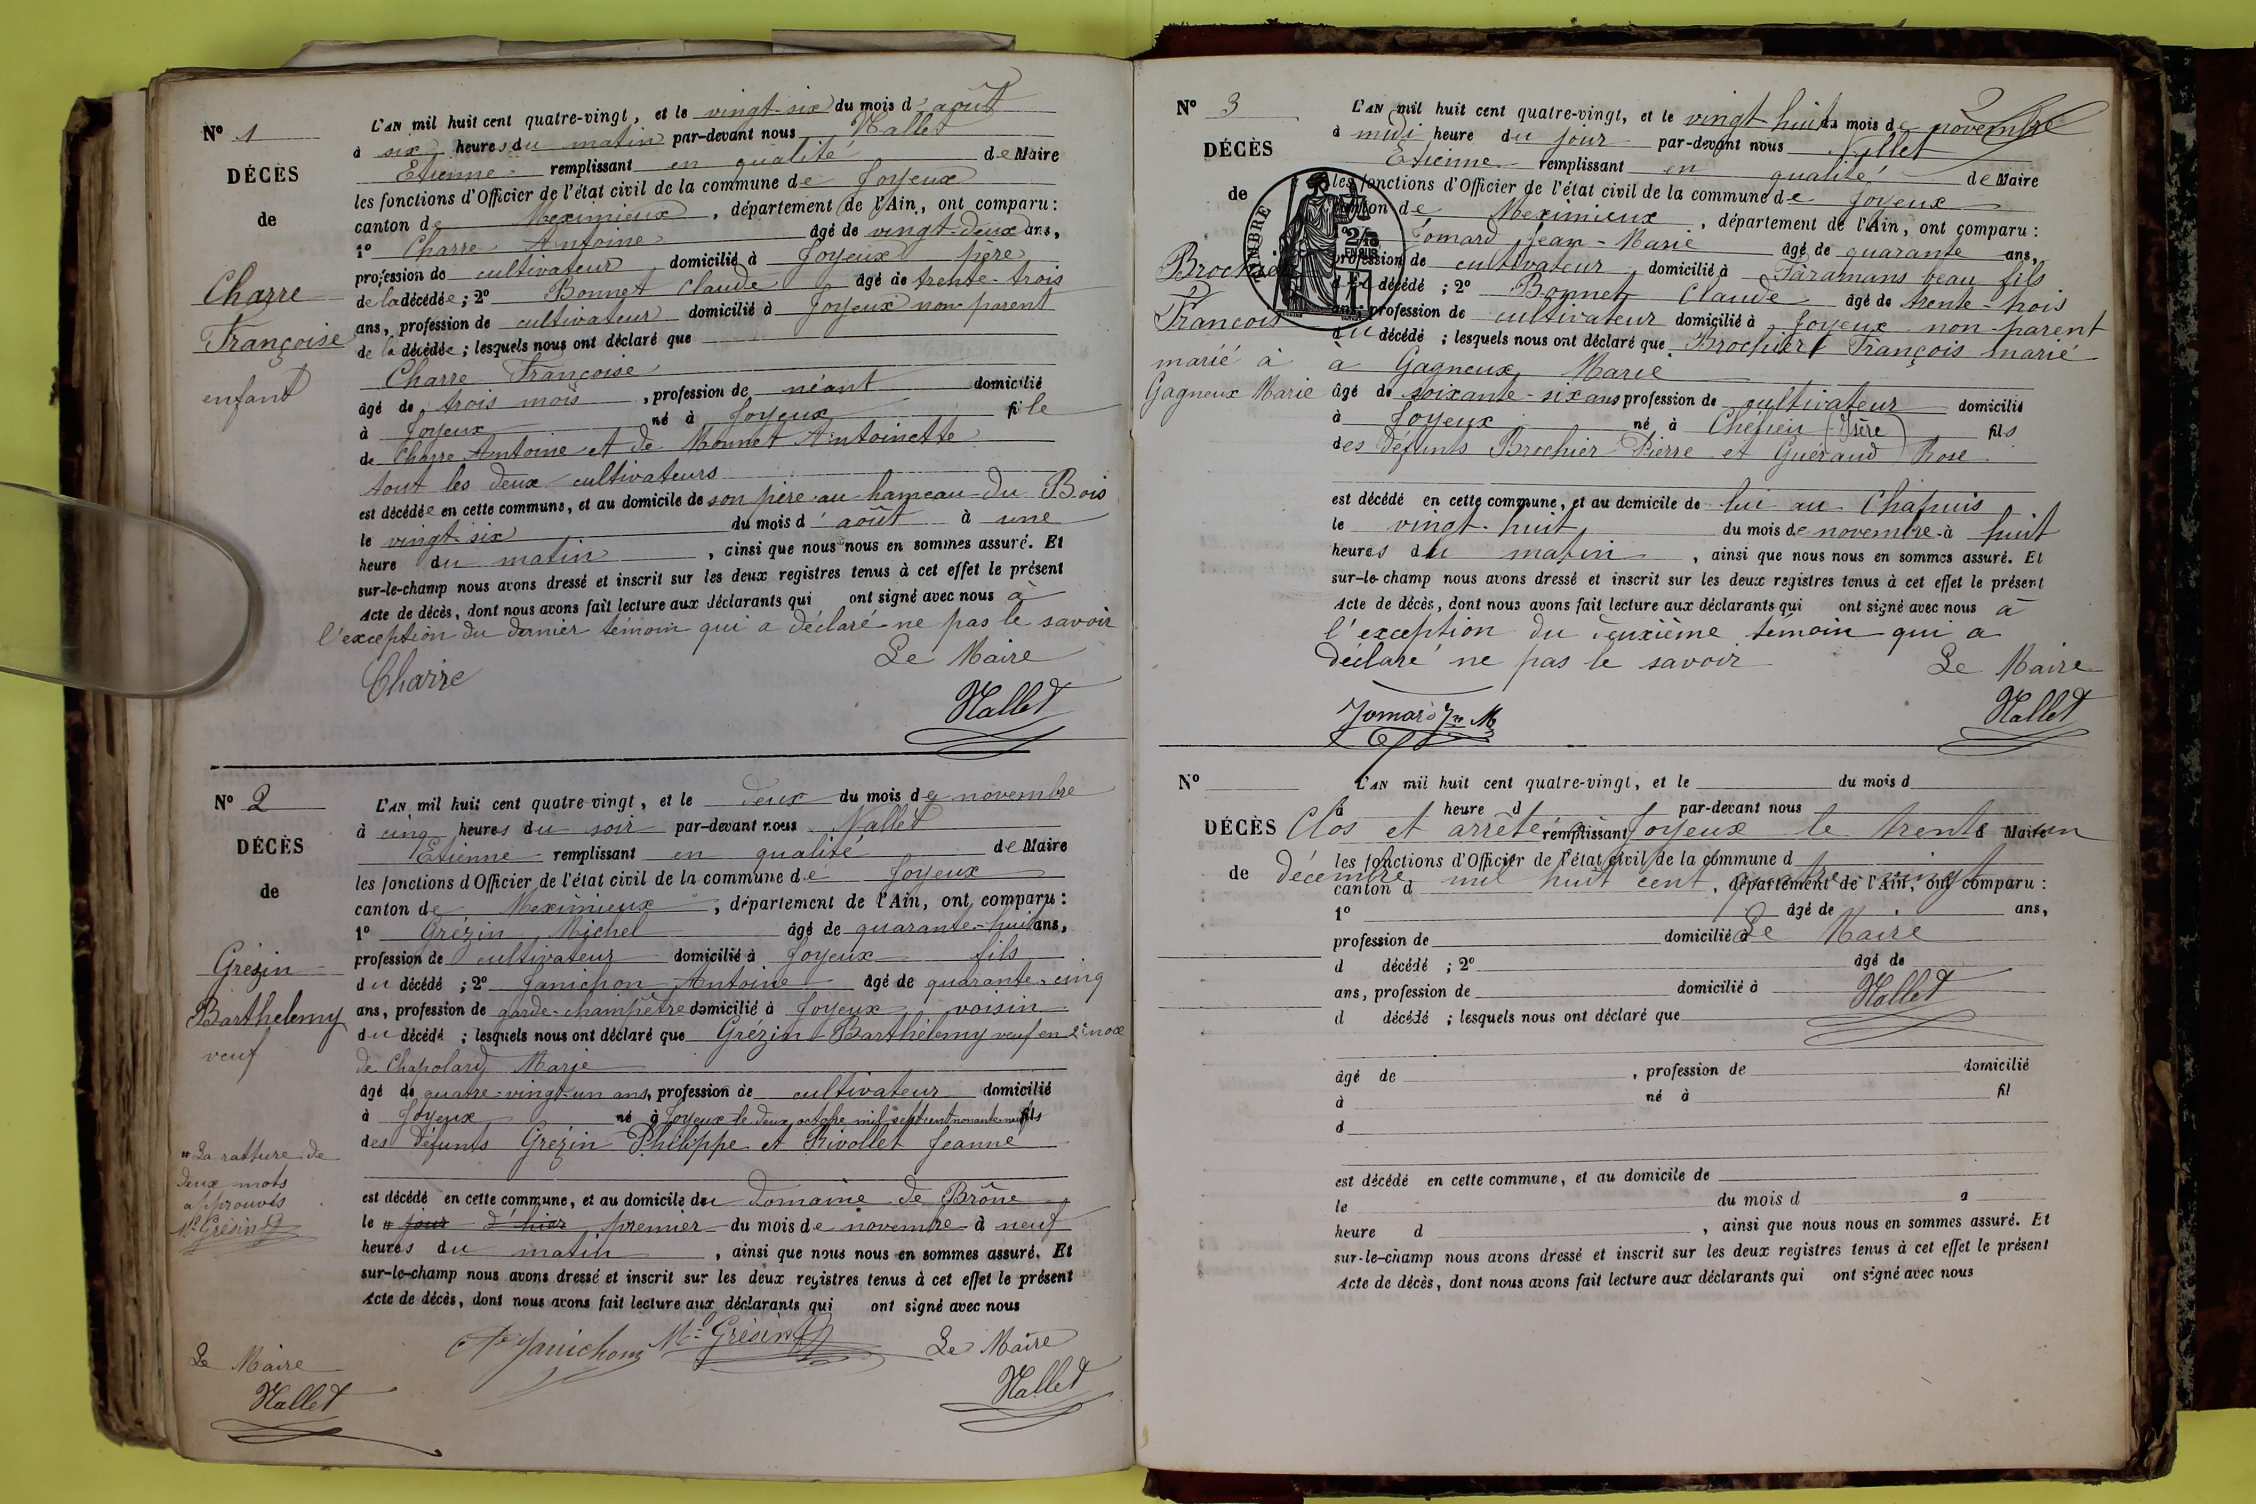 N° 1
DÉCÈS
de
Charre
Françoise
enfant
L'AN mil huit cent quatre-vingt, et le vingt-six du mois d'août
à six heures du matin par-devant nous Nallet
Etienne remplissant en qualité de Maire
les fonctions d'Officier de l'état civil de la commune de Joyeux
canton de Meximieux, département de l'Ain, ont comparu :
1° Charre Antoine âgé de vingt-deux ans,
profession de cultivateur domicilié à Joyeux père
de la décédée ; 2° Bonnet Claude âgé de trente-trois
ans, profession de cultivateur domicilié à Joyeux non parent
de la décédée ; lesquels nous ont déclaré que
Charre Françoise
âgé de trois mois, profession de néant domicilié
à Joyeux né à Joyeux fille
de Charre Antoine et de Monnet Antoinette
tout les deux cultivateurs
est décédée en cette commune, et au domicile de son père au hameau du Bois
le vingt-six du mois d'août à une
heure du matin, ainsi que nous nous en sommes assuré. Et
sur-le-champ nous avons dressé et inscrit sur les deux registres tenus à cet effet le présent
Acte de décès, dont nous avons fait lecture aux déclarants qui ont signé avec nous à
l'exception du dernier témoin qui a déclaré ne pas le savoir
Le Maire
Charre
Nallet
N° 2
DÉCÈS
de
Grézin
Barthelemy
veuf
L'AN mil huit cent quatre-vingt, et le deux du mois de novembre
à cinq heures du soir par-devant nous Nallet
Etienne remplissant en qualité de Maire
les fonctions d'Officier de l'état civil de la commune de Joyeux
canton de Meximieux, département de l'Ain, ont comparu :
1° Grézin Michel âgé de quarante-huit ans,
profession de cultivateur domicilié à Joyeux fils
du décédé ; 2° Janichon Antoine âgé de quarante-cinq
ans, profession de garde-champêtre domicilié à Joyeux voisin
du décédé ; lesquels nous ont déclaré que Grézin Barthélemy veuf en 2e noce
de Chapolard Marie
âgé de quatre-vingt-un ans, profession de cultivateur domicilié
à Joyeux né à Joyeux le deux octobre mil sept cent nonante neuf fils
des défunts Grézin Philippe et Rivollet Jeanne
est décédé en cette commune, et au domicile du domaine de Brône
le jour d'hier premier du mois de novembre à neuf
heures du matin, ainsi que nous nous en sommes assuré. Et
sur-le-champ nous avons dressé et inscrit sur les deux registres tenus à cet effet le présent
Acte de décès, dont nous avons fait lecture aux déclarants qui ont signé avec nous
La ratture de
deux mots
approuvés
M. Grésin
Le Maire
Nallet
Janichon M. Grésin Le Maire
Nallet
2
N° 3
DÉCÈS
de
Brochier
François
marié à
Gagneux Marie
TIMBRE
L'AN mil huit cent quatre-vingt, et le vingt huit du mois de novembre
à midi heure du jour par-devant nous Nallet
Etienne remplissant en qualité de Maire
les fonctions d'Officier de l'état civil de la commune de Joyeux
canton de Meximieux, département de l'Ain, ont comparu :
Jomard Jean-Marie âgé de quarante ans,
profession de cultivateur domicilié à Faramans beau fils
du décédé ; 2° Bonnet Claude âgé de trente-trois
ans, profession de cultivateur domicilié à Joyeux non parent
du décédé ; lesquels nous ont déclaré que Brochier François marié
à Gagneux Marie
âgé de soixante-six ans profession de cultivateur domicilié
à Joyeux né à (Isère) fils
des défunts Brochier Pierre et Guéraud Rose
est décédé en cette commune, et au domicile de lui au Chapuis
le vingt-huit du mois de novembre à huit
heures du matin, ainsi que nous nous en sommes assuré. Et
sur-le-champ nous avons dressé et inscrit sur les deux registres tenus à cet effet le présent
Acte de décès, dont nous avons fait lecture aux déclarants qui ont signé avec nous à
l'exception du deuxième témoin qui a
déclaré ne pas le savoir Le Maire
Jomard Jn M
Nallet
N°
DÉCÈS
de
L'AN mil huit cent quatre-vingt, et le du mois d
à heure d par-devant nous
Clos et arrêté à Joyeux le trente un
remplissant d Maire
les fonctions d'Officier de l'état civil de la commune d
décembre mil huit cent quatre-vingt
canton d, département de l'Ain, ont comparu :
1° âgé de ans,
profession de domicilié à
Le Maire
d décédé ; 2° âgé de
ans, profession de domicilié à
Nallet
d décédé ; lesquels nous ont déclaré que
âgé de, profession de domicilié
à né à fil
d
est décédé en cette commune, et au domicile de
le du mois d à
heure d, ainsi que nous nous en sommes assuré. Et
sur-le-champ nous avons dressé et inscrit sur les deux registres tenus à cet effet le présent
Acte de décès, dont nous avons fait lecture aux déclarants qui ont signé avec nous